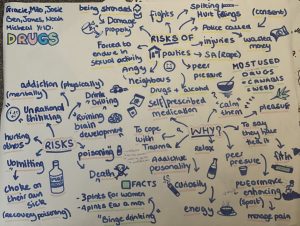 Gracie, Milo, José
Ben, Jones, Noah
DRUGS
being stranded
Damage
property
fights
Hurt feelings
spiking
(consent)
Police called
RISKS OF
injuries
wasted
money
Forced to
endure in
sexual activity
Parties
SA (Rape)
Angry
neighbours
peer
pressure
Drugs + alcohol
MOST USED
DRUGS
addiction (physically)
(mentally)
Unrational
thinking
Drink
Driving
Ruining
brain
development
Self prescribed
medication
"calm
them"
pleasure
hurting
others
RISKS
poisoning
To cope
with
Trauma
WHY?
Relax
To say
they have
tried it
Vomitting
Death
Addictive
personality
peer
pressure
fit in
choke on
their own
sick
(recovery position)
FACTS
- 3 pints for women
- 4 pints for a man
"Binge drinking"
curiosity
energy
performance
enhancing
(sport)
manage pain